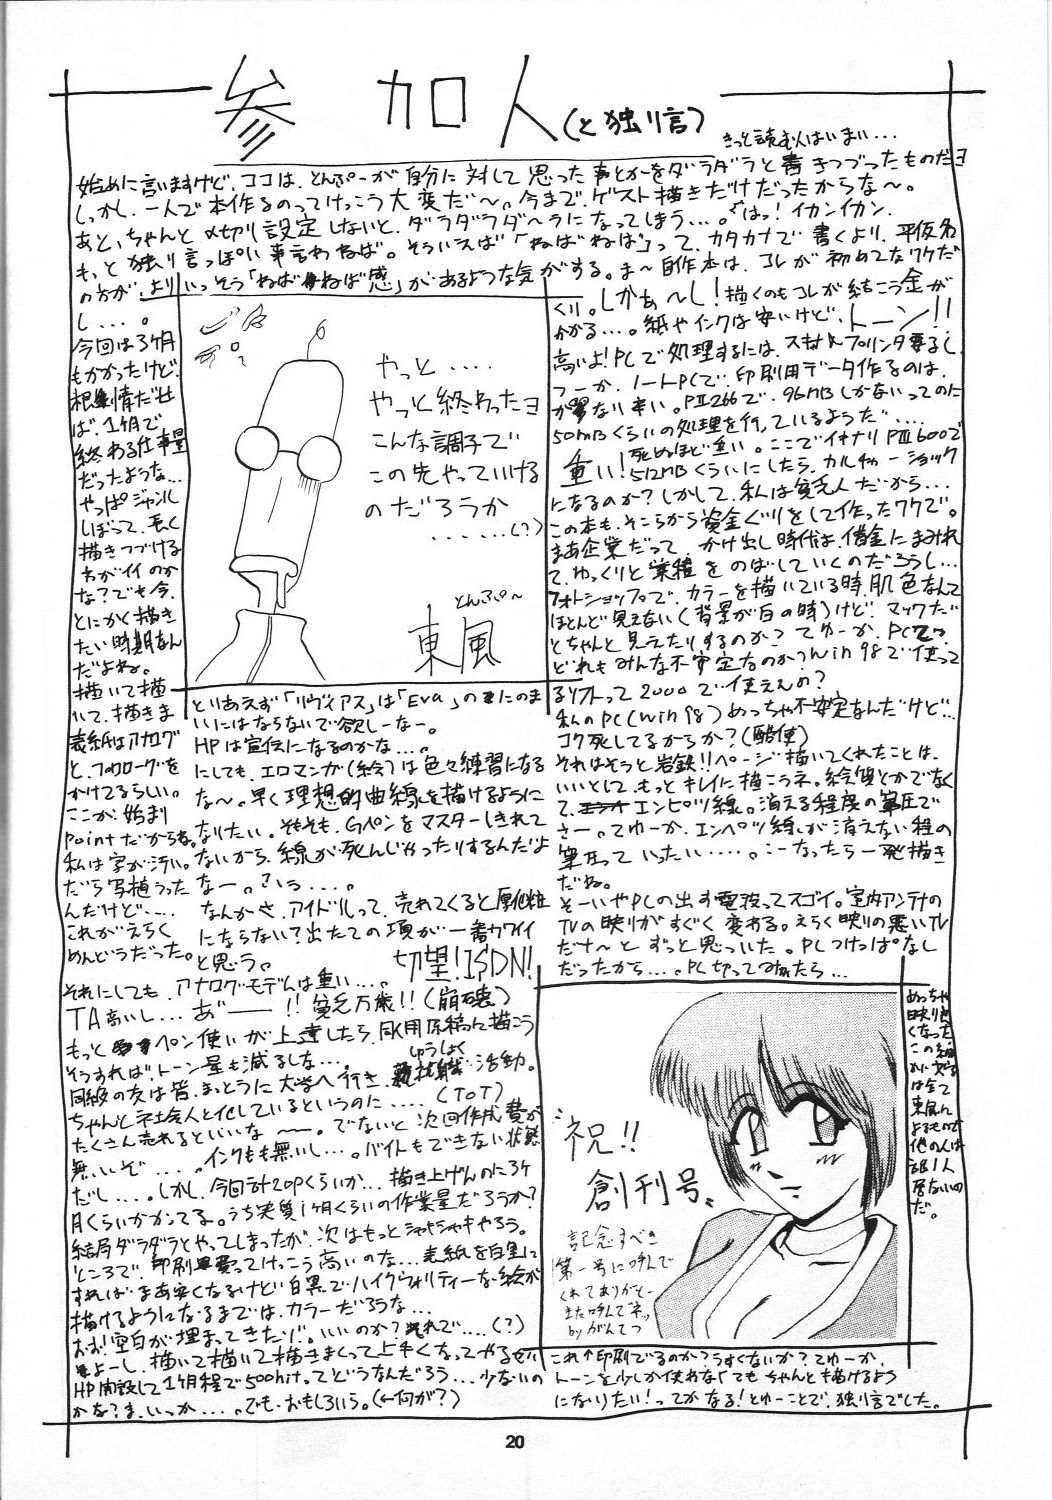 参加人(と独り言)
きっと読む人はいまい...
始めに言いますけど、ココは、とんぷーが自分に対して思った事とかをダラダラと書きつづったものだヨ
しかし、一人で本作るのってけっこう大変だ〜。今まで、ゲスト描きだけだったからな〜。
あと、ちゃんと〆切り設定しないと、ダラダラダ〜ラになってしまう...。はっ!イカンイカン、
もっと独り言っぽい事言わねば。そういえば「ねばねば」って、カタカナで書くより、平仮名
の方が、よりいっそう「ねばねば感」があるような気がする。ま〜自作本は、コレが初めてなワケだ
し....。
今回は3ヶ月
もかかったけど、
根性
ば、1ヶ月で
終わる仕事量
だったような...
やっぱジャンル
しぼって、長く
描きつづける
わがイイのか
な?でも今、
とにかく描き
たい時期なん
だよね。
描いて描
いて、描きま
くり。しかぁ〜し!描くのもコレが結こう金が
かかる...。紙やインクは安いけど、トーン!!
高いよ!PCで処理するには、スキャナ、プリンタ要るし、
つーか、ノートPCで、印刷用データ作るのは、
かなり辛い。PⅡ266で、96MBしかないってのに
50MBくらいの処理を行っているようだ....
死ぬほど重い。ここでイキナリPⅢ600で
重い!512MBくらいにしたら、カルチャーショック
になるのか?しかして、私は貧乏人だから...
この本も、そこらから資金ぐりをして作ったワケで。
まあ企業だって、かけ出し時代は、借金にまみれ
て、ゆっくりと業種をのばしていくのだろうし...
フォトショップで、カラーを描いている時、肌色なんて
ほとんど見えない(背景が白の時)けど、マックだ
とちゃんと見えたりするのか?てゆーか、PCって
どれもみんな不安定なのか?win98で使って
るソフトって2000で使えんの?
私のPC(win98)めっちゃ不安定なんだけど...
コク死してるからか?(酷使)
それはそうと岩鉄!!ページ描いてくれたことは、
いいとして、もっとキレイに描こうネ。絵質とかでなく
て、エンピツ線。消える程度の筆圧で
さー。てゆーか、エンペツ線が消えない程の
筆圧っていったい.....。こーなったら一発描き
だね。
そーいやPCの出す電波ってスゴイ。室内アンテナの
TVの映りがすぐく変わる。えらく映りの悪いTV
だナ〜とずっと思っていた。PCつけっぱなし
だったから....。PC切ってつけたら...
めっちゃ
映り良
くなった
この細
かい文字
は全て
東風に
よるもので
他の人は
誰1人
居ないの
だ。
やっと....
やっと終わったヨ
こんな調子で
この先やっていける
のだろうか
......(?)
とんぷ〜
東風
とりあえず「リヴァイアス」は「Eva」の
いにはならないで欲しーなー。
HPは宣伝になるのかな...。
にしても、エロマンガ(絵)は色々練習になる
な〜。早く理想的曲線を描けるように
なりたい。そもそも、Gペンをマスターしきれて
ないから、線が死んじゃったりするんだよ
なー。さいっ....。
なんかさ、アイドルって、売れてくると厚化粧
にならない?出たての頃が一番カワイイ
と思う。
表紙はアナログ
と、フォトローグを
かけてるらしい。
ここが、始まり
Pointだからね。
私は字が汚い。
だら写植うった
んだけど....
これがえらく
めんどうだった。
切望!ISDN!
それにしても、アナログモデムは重い...。
TA高いし...あ゛ー!!貧乏万歳!!(崩壊)
もっとペン使いが上達したら、B4用原稿に描こう
そうすれば、トーン量も減るしな...
しゅうしょく
同級の友は皆、まっとうに大学へ行き、就職活動。
ちゃんと社会人と化しているというのに....(ToT)
たくさん売れるといいな〜。でないと次回作成費が
無いぞ....。インクも無いし...。バイトもできない状態
だし....。しかし、今回計20Pくらいか...描き上げんのに3ヶ
月くらいかかってる。うち実質1ヶ月くらいの作業量だろうか?
結局ダラダラとやってしまったが、次はもっとシャキシャキやろう。
ところで、印刷費ってけっこう高いのな...表紙を白黒に
すれば、まあ安くなるけど、白黒でハイクウォリティーな絵が
描けるようになるまでは、カラーだろうな...
おお!空白が埋まってきたゾ。いいのか?それで....(?)
よーし、描いて描いて描きまくって上手くなってやるぜい
HP開設して1ヶ月程で500hitってどうなんだろう...少ないの
かな?ま、いっか....。でも、おもしろいう。(←何が?)
祝!!
創刊号。
記念すべき
第一号に呼んで
くれてありがとー
また呼んでネッ
by がんてつ
これ↑印刷でるのか?うすくないか?てゆーか、
トーンを少しか使わなくてもちゃんと描けるよう
になりたい!ってかなる!とゆーことで、独り言でした。
20